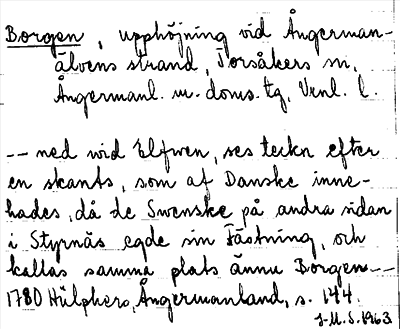 Borgen, upphöjning vid Ångerman-
älvens strand, Torsåkers sn,
Ångermanl. m. doms. tg, Vrnl. l.
-- ned wid Elfwen, ses tecken efter
en skants, som af Danske inne-
hades, då de Swenske på andra sidan
i Styrnäs egde sin Fästning, och
kallas samma plats ännu Borgen --
1780 Hülphers, Ångermanland, s. 144.
J-M. S. 1963